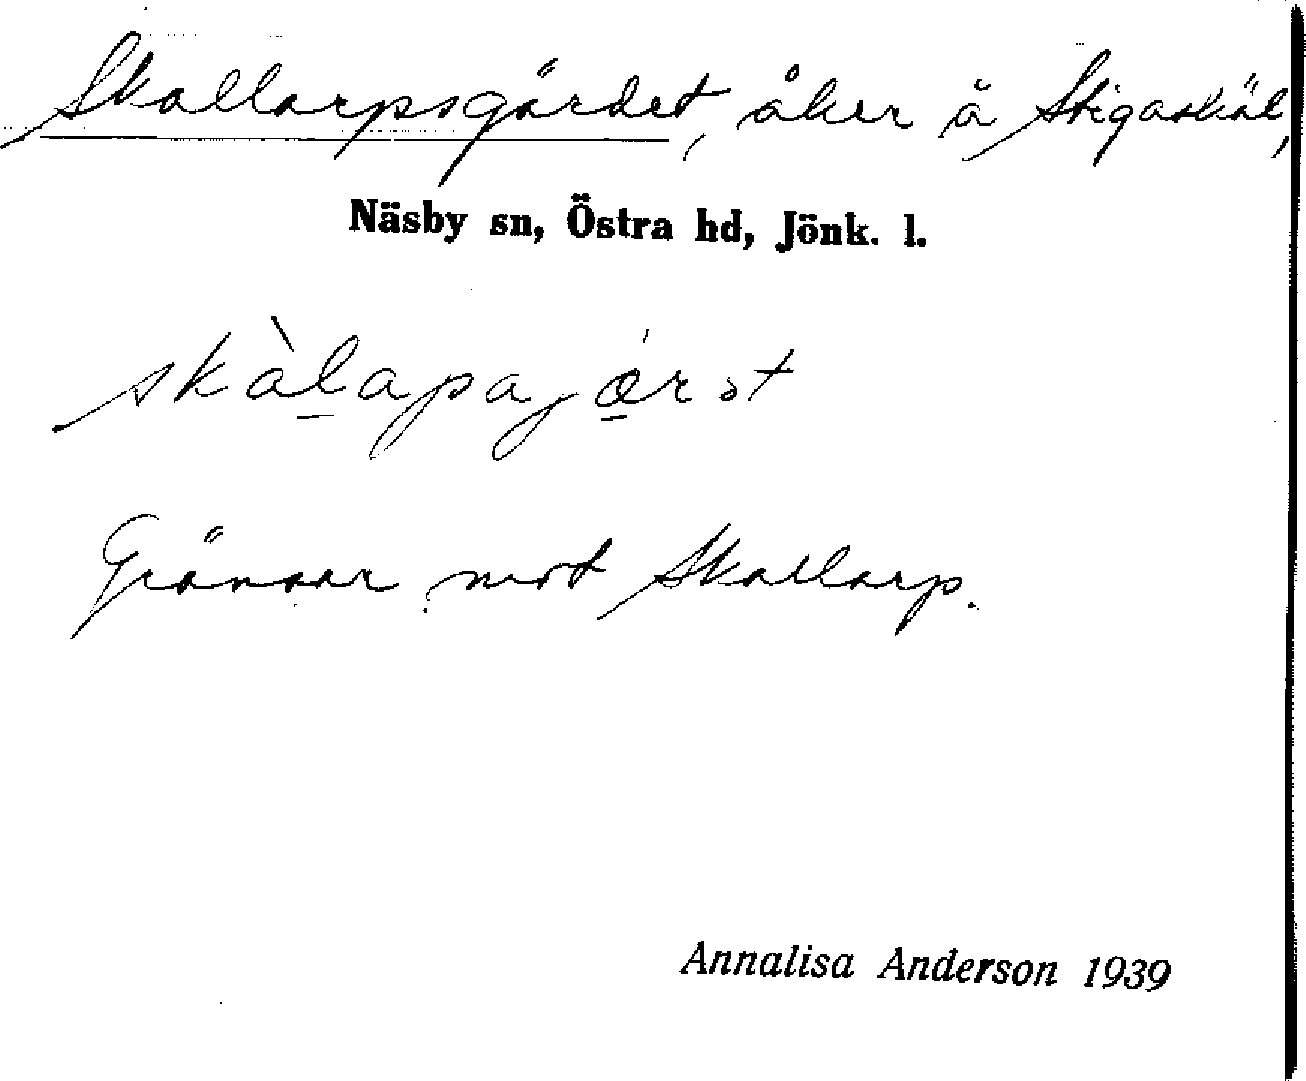 Skallarpsgärdet, åker å Stigaskäl,
Näsby sn, Östra hd, Jönk. l.
skàl̲apajǽ̲rət
Gränsar mot Skallarp.
Annalisa Anderson 1939